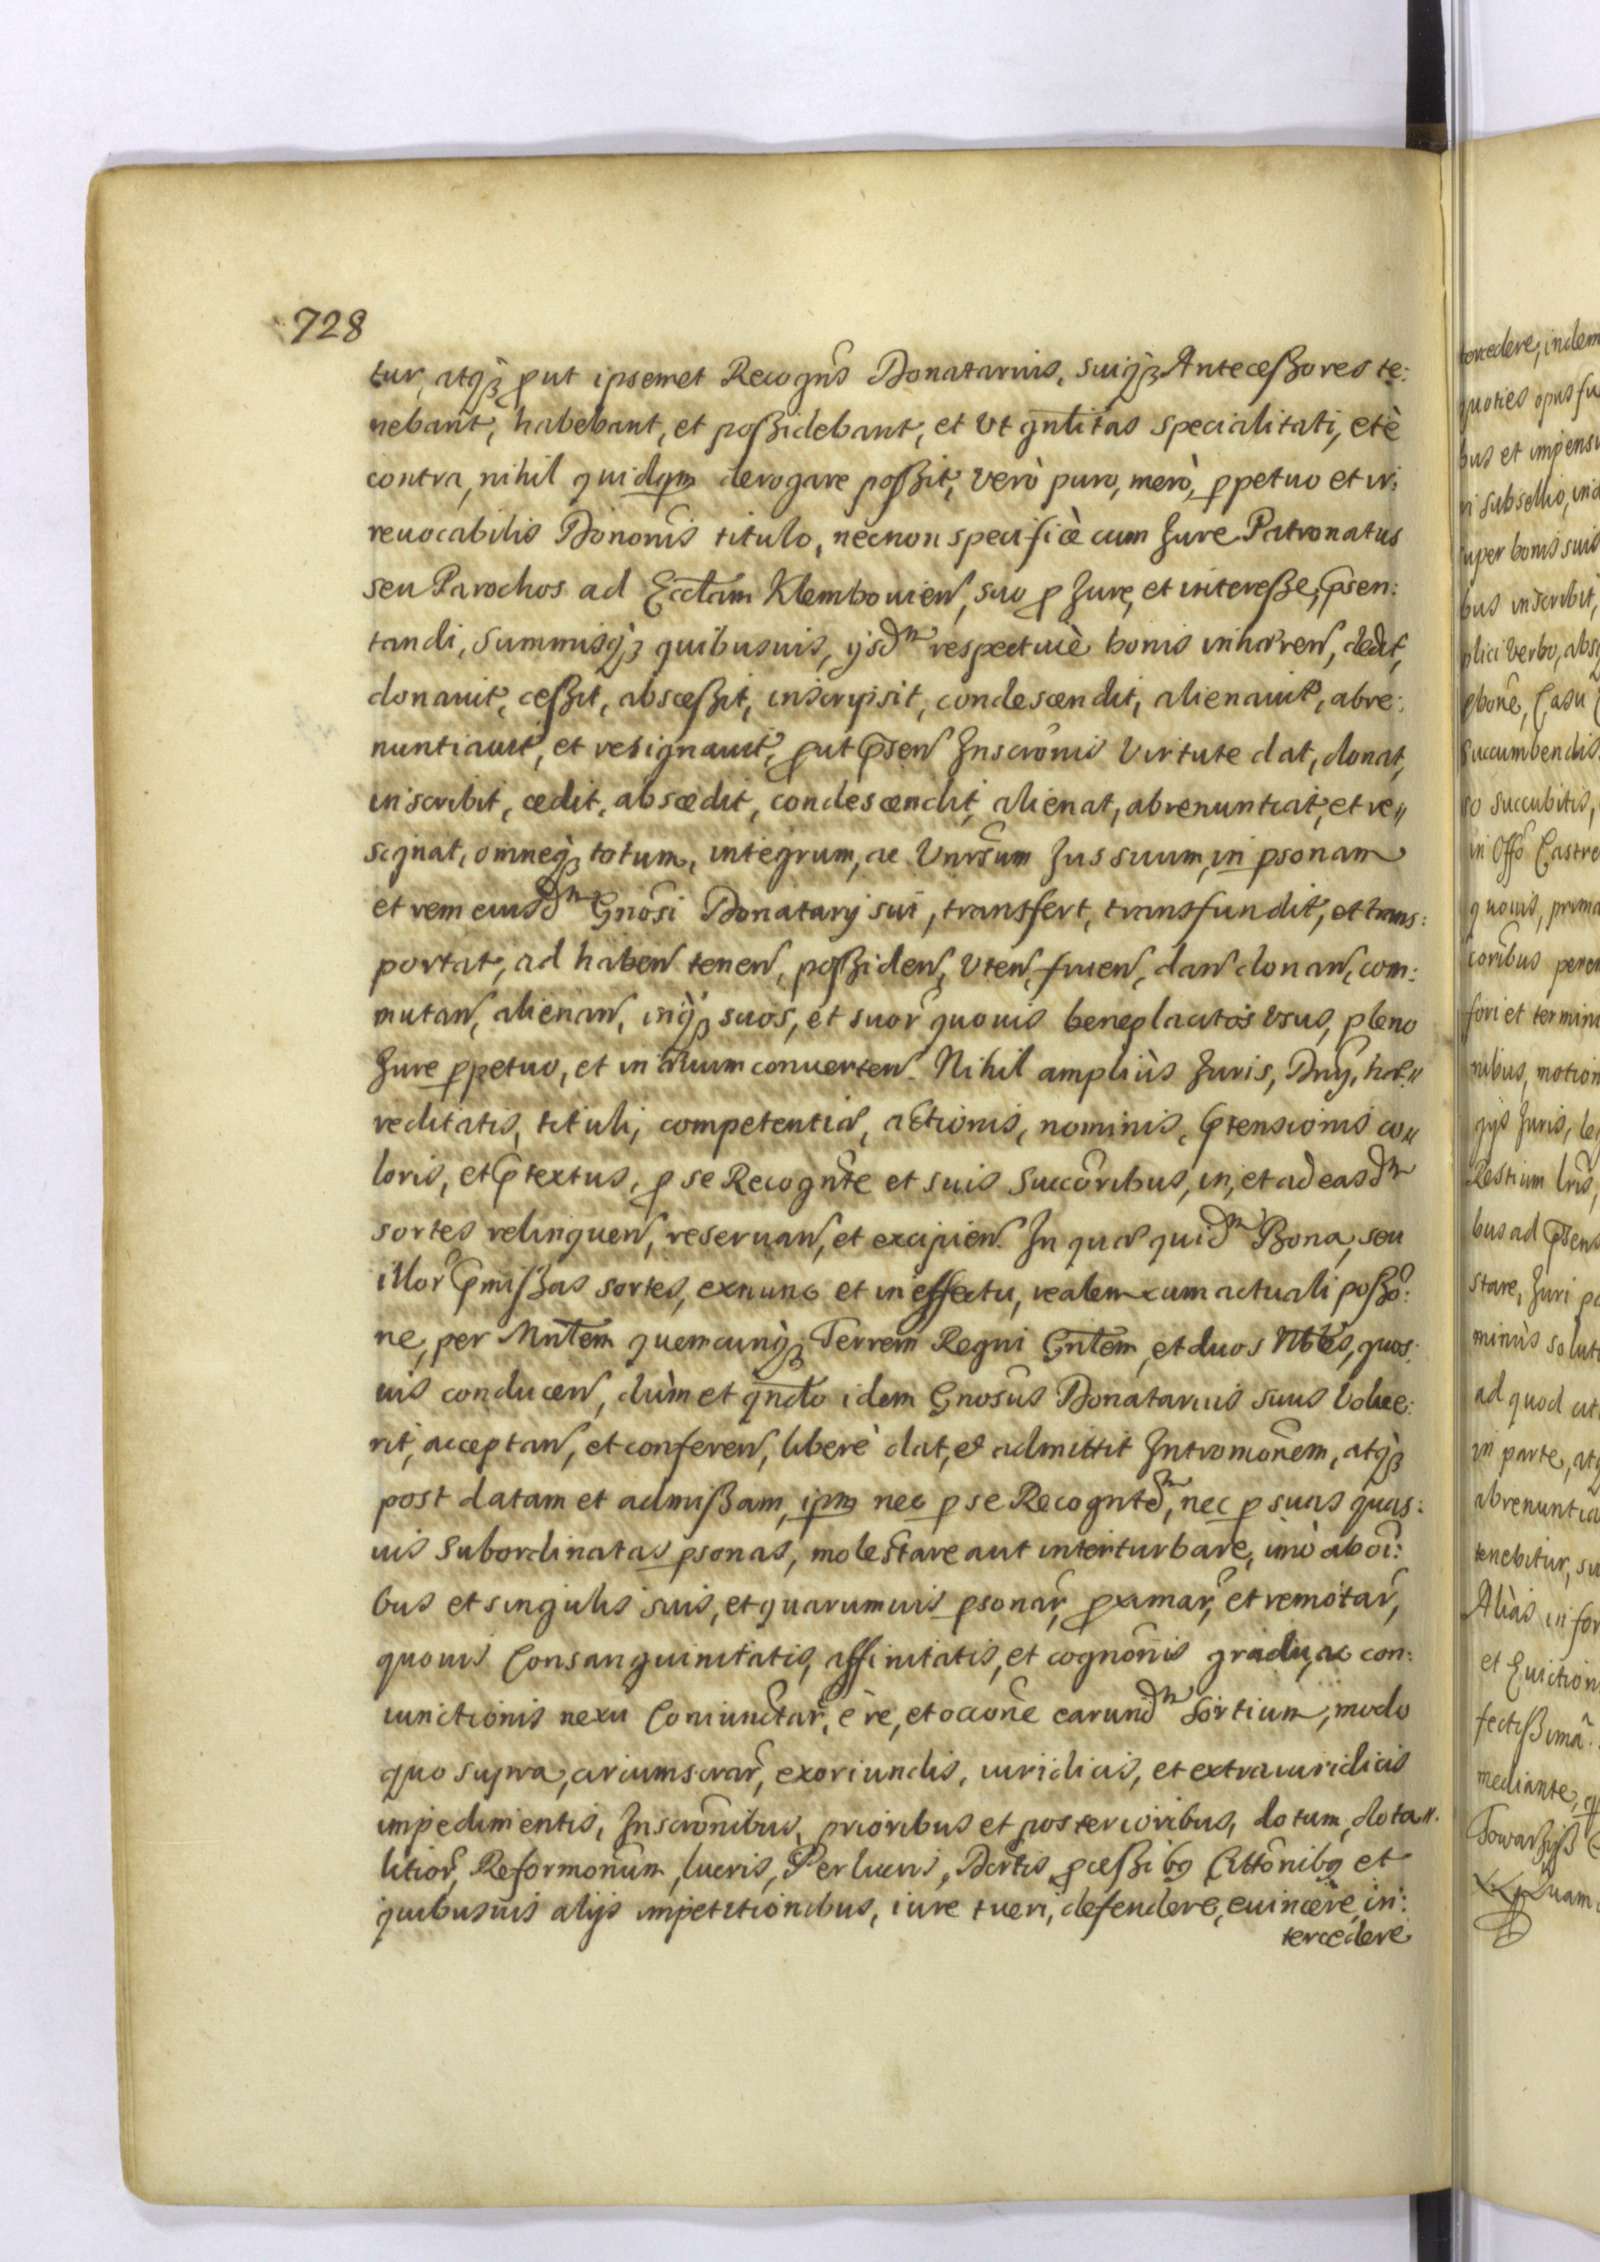 728
tur, atq₃ put ipsemet Recogñs Donatarius, suiq₃ Antecessores te:
nebant, habebant, et possidebant, et Vt gnlitas specialitati, et è
contra, nihil quidqm derogare possit, Verò puro, merò, ppetuo et ir:
reuocabilis Dononis titulo, necnon specificè cum Jure Patronatus
seu Parochos ad Ecclam Klembouien, suo p Jure, et interesse, psen:
tandi, Summisq₃ quibusuis, ysdm respectiuè bonis inhæren, dedit,
donauit, cessit, abscessit, inscripsit, condescendit, alienauit, abre:
nuntiauit, et resignauit, put psen Inscronis Virtute dat, donat,
inscribit, cedit, abscedit, condescendit, alienat, abrenuntiat, et re〃
signat, omneq₃ totum, integrum, ac Vnirsum Jus suum, in psonam
et rem eiusdm Gnosi Donatarij sui, transfert, transfundit, et trans:
portat, ad haben tenen, possiden, Vten, fruen, dan donan, com:
mutan, alienan, inq₃ suos, et suor quouis beneplacitos Vsus, pleno
Jure ppetuo, et in æuum conuerten. Nihil ampliùs Juris, Dnij, hæ〃
reditatis, tituli, competentiæ, actionis, nominis, ptensionis co〃
loris, et ptextus, p se Recognte et suis Succoribus, in, et ad easdm
sortes relinquen, reseruan, et excipien. In quæ quidm Bona, seu
illor pmissas sortes, exnunc et in effectu, realem cum actuali posso:
ne, per Mntem quemcunq₃ Terrem Regni Gntem, et duos Nbles, quos:
uis conducen, dùm et qndo idem Gnosus Donatarius suus Volue:
rit, acceptan, et conferen, liberè dat, et admittit Intromonem, atq₃
post datam et admissam, ipm nec p se Recogntem, nec p suas quas:
uis Subordinatas psonas, molestare aut interturbare, imò ab oi:
bus et singulis suis, et quarumuis psonar, pximar, et remotar,
quouis Consanguinitatis, affinitatis, et cognonis gradu, ac con:
iunctionis nexu Coniunctar, è re, et occone earundm Sortium, modo
quo supra, circumscrar, exoriundis, iuridicis, et extraiuridicis
impedimentis, Inscronibus, prioribus et posterioribus, dotum, dota〃
litior, Reformonum, lucris, Perlucris, Dectis, pcessibg Cittonibg et
quibusuis alijs impetitionibus, iure tueri, defendere, euincere, in:
tercedere
tercedere, indem
quoties opus fu
bus et impens
ri subsellio, ind
super bonis suis
bus inscribit,
plici Verbo, abs
Succumbendis
so succubitis,
in Offo Castre
quouis, prima
coribus perem
fori et termin
nibus, motion
gijs Juris, le
Restium lris,
bus ad psens
stare, Juri pa
minùs solut
ad quod cit
in parte, at
abrenuntia
tenebitur, su
Aliàs in for
et Euiction
fectissimâ
mediante,